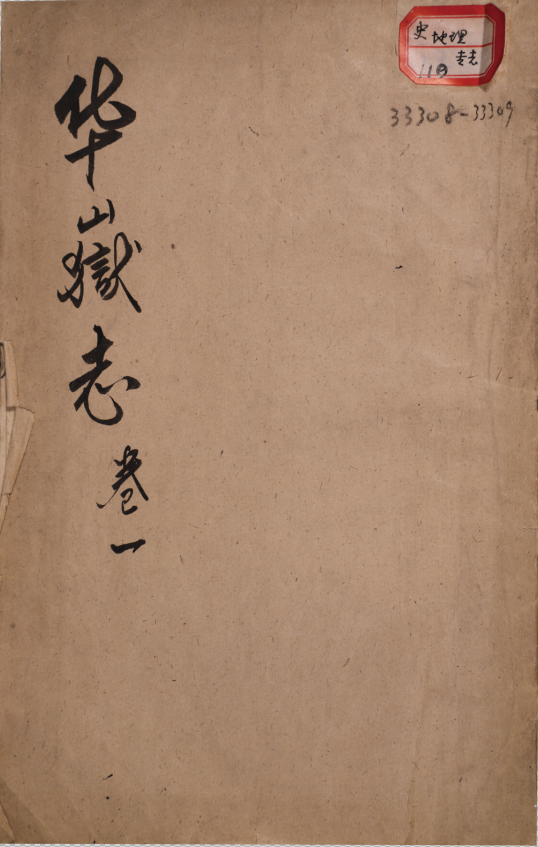 华嶽志 卷一
史地理
专志
119
33308-33309